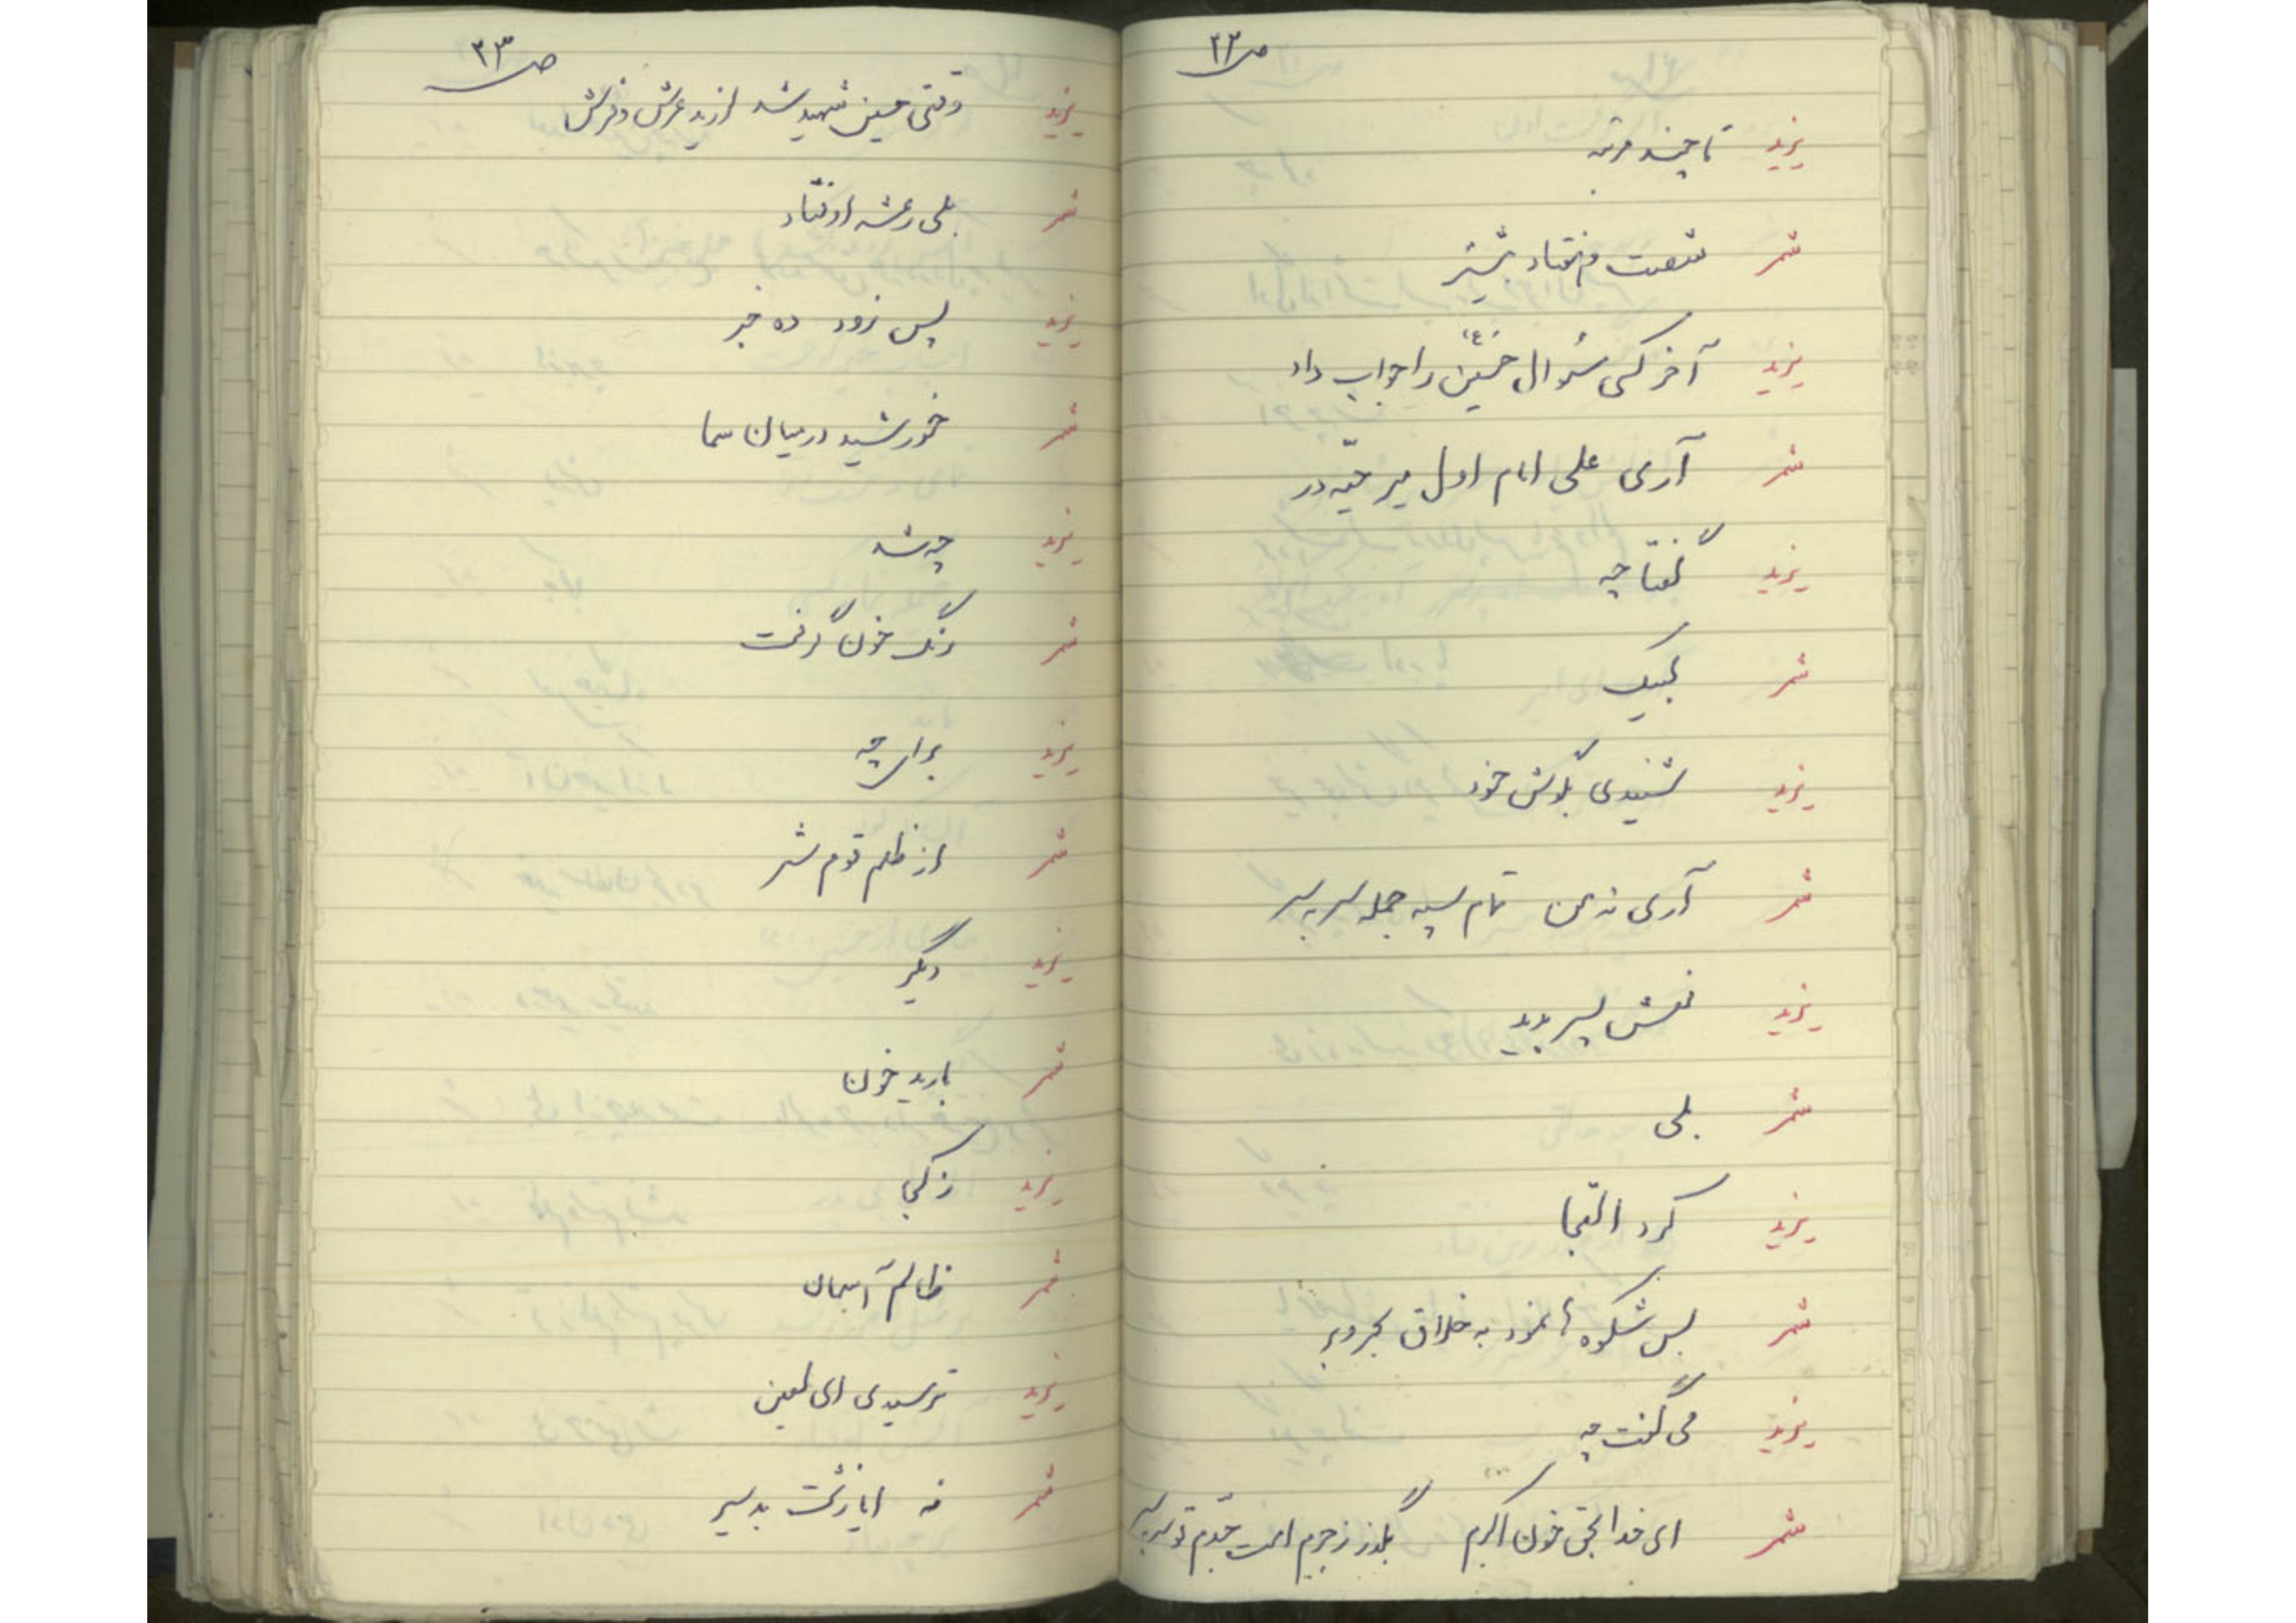 ص ۲۲
یزید تا چند مرتبه
شمر شصت و هفتاد بیشتر
یزید آخر کسی سئوال حسین ع را جواب داد
شمر آری علی امام اول میر حیه در
یزید گفتا چه
شمر لبیک
یزید شنیدی بگوش خود
شمر آری نه من تمام سپه جمله سر به سر
یزید نعش پسر بدید
شمر بلی
یزید کرد التجا
شمر بس شکوه ها نمود به خلاق بحر و بر
یزید می گفت چه
شمر ای خدا بحق خون اکبرم بگذر ز جرم امت جدم تو سر به سر
ص ۲۳
یزید وقتی حسین شهید شد لرزید عرش و فرش
شمر بلی رعشه اوفتاد
یزید پس زود ده خبر
شمر خورشید در میان سما
یزید چه شد
شمر رنگ خون گرفت
یزید برای چه
شمر از ظلم قوم شر
یزید دیگر
شمر بارید خون
یزید ز کجا
شمر ظالم آسمان
یزید ترسیدی ای لعین
شمر نه ایا زشت بد سیر